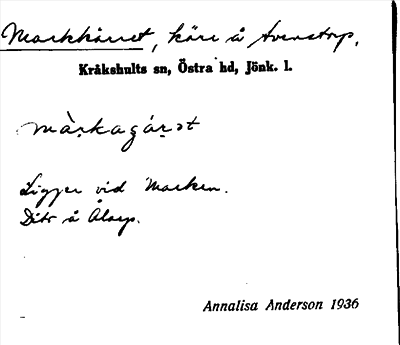 Markkärret, kärr å Averstorp.
Kråkshults sn, Östra hd, Jönk. l.
màrkagárət
Ligger vid Marken.
Dito å Åtorp.
Annalisa Anderson 1936